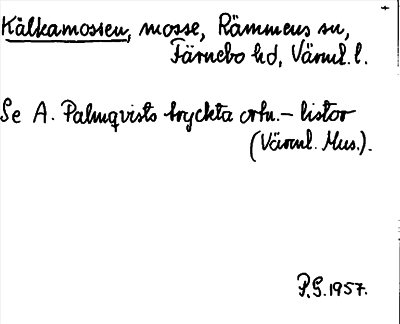 Kälkamossen, mosse, Rämmens sn,
Färnebo hd, Värml. l.
Se A. Palmqvists tryckta ortn.-listor
(Värml. Mus.).
P.G. 1957.